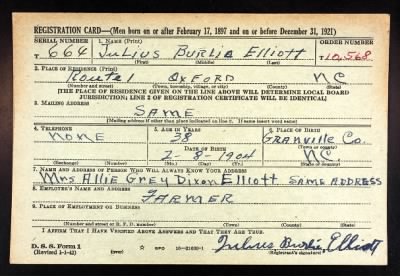 REGISTRATION CARD—(Men born on or after February 17, 1897 and on or before December 31, 1921)
SERIAL NUMBER 1. NAME (Print) ORDER NUMBER
T 664 Julius Burlie Elliott T 10,568
(First) (Middle) (Last)
2. PLACE OF RESIDENCE (Print)
Route 1 OXFORD NC
(Number and street) (Town, township, village, or city) (County) (State)
[THE PLACE OF RESIDENCE GIVEN ON THE LINE ABOVE WILL DETERMINE LOCAL BOARD
JURISDICTION; LINE 2 OF REGISTRATION CERTIFICATE WILL BE IDENTICAL]
3. MAILING ADDRESS
SAME
[Mailing address if other than place indicated on line 2. If same insert word same]
4. TELEPHONE 5. AGE IN YEARS 6. PLACE OF BIRTH
NONE 38 GRANVILLE Co.
DATE OF BIRTH (Town or county)
2 8 1904 NC
(Exchange) (Number) (Mo.) (Day) (Yr.) (State or country)
7. NAME AND ADDRESS OF PERSON WHO WILL ALWAYS KNOW YOUR ADDRESS
Mrs Allie Grey Dixon Elliott SAME ADDRESS
8. EMPLOYER'S NAME AND ADDRESS
FARMER
9. PLACE OF EMPLOYMENT OR BUSINESS
(Number and street or R. F. D. number) (Town) (County) (State)
I AFFIRM THAT I HAVE VERIFIED ABOVE ANSWERS AND THAT THEY ARE TRUE.
D. S. S. Form 1
(Revised 1-1-42) GPO 16—21630-1 Julius Burlie Elliott
(Registrant's signature)